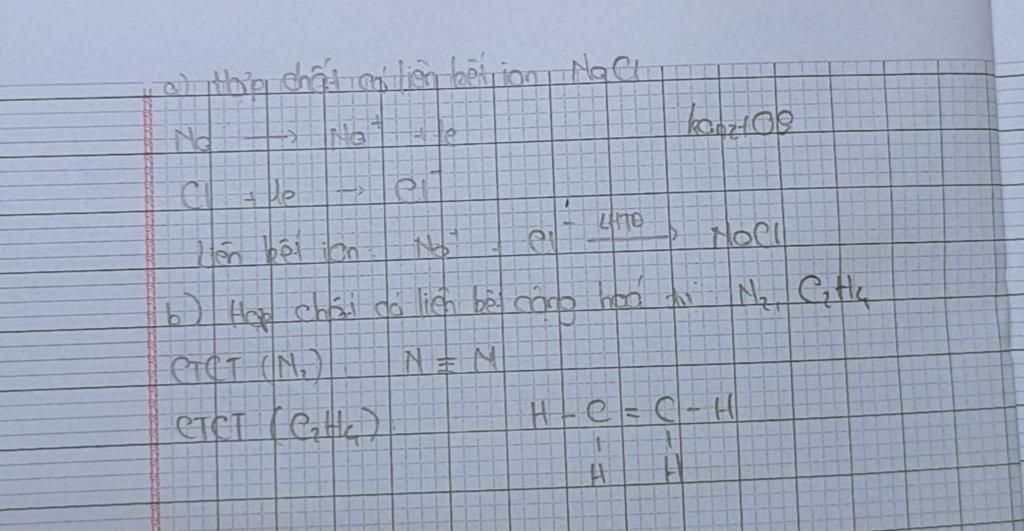 a) Hợp chất có liên kết ion NaCl
Na → Na⁺ + 1e
Cl + 1e → Cl⁻
Liên kết ion: Na⁺ + Cl⁻ → NaCl
b) Hợp chất có liên kết cộng hoá trị N₂, C₂H₄
CTCT (N₂) N ≡ N
CTCT (C₂H₄) H - C = C - H
H H